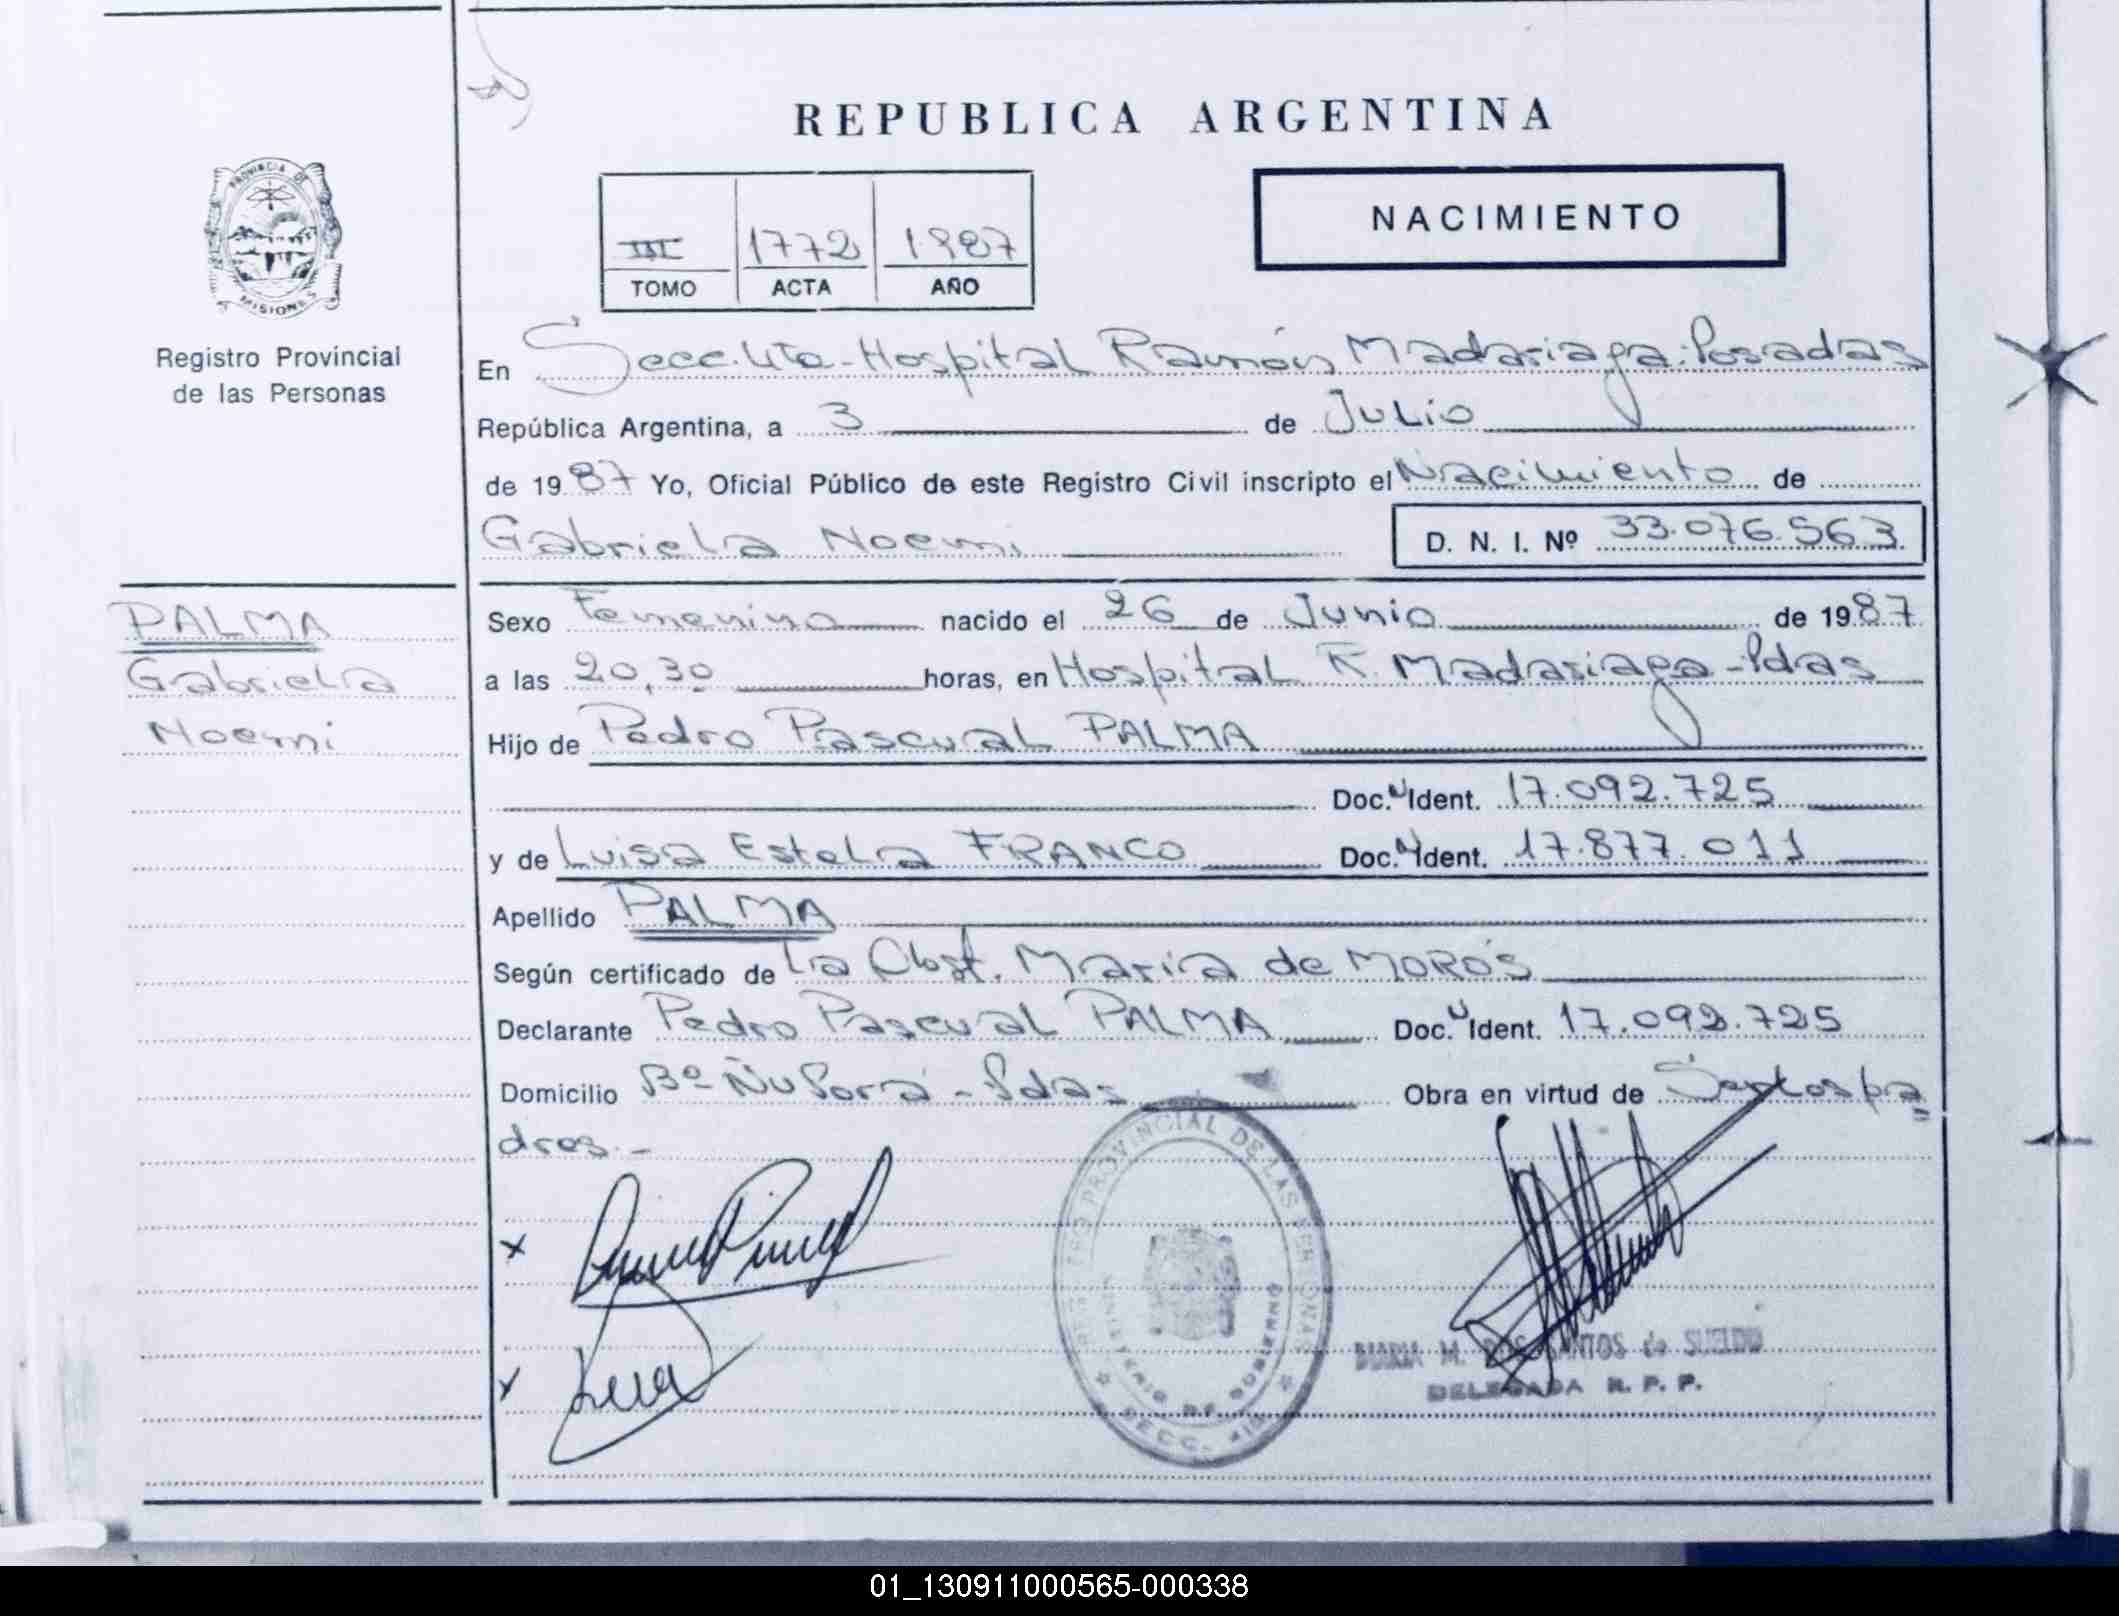 REPUBLICA ARGENTINA
PROVINCIA DE
MISIONES
Registro Provincial
de las Personas
NACIMIENTO
III 1772 1987
TOMO ACTA AÑO
En Secc. 4ta - Hospital Ramón Madariaga - Posadas
República Argentina, a 3 de Julio
de 1987 Yo, Oficial Público de este Registro Civil inscripto el Nacimiento de
Gabriela Noemi D. N. I. Nº 33.076.563
PALMA
Gabriela
Noemi
Sexo Femenino nacido el 26 de Junio de 1987
a las 20,30 horas, en Hospital R. Madariaga - Pdas
Hijo de Pedro Pascual PALMA
Doc. Ident. 17.092.725
y de Luisa Estela FRANCO Doc. Ident. 17.877.011
Apellido PALMA
Según certificado de La Obst. Maria de MOROS
Declarante Pedro Pascual PALMA Doc. Ident. 17.092.725
Domicilio Bº Ñu Porá - Pdas Obra en virtud de Septos pa
dres.-
REGISTRO PROVINCIAL DE LAS PERSONAS
MINISTERIO DE GOBIERNO
SECC. 4ta
MARIA M. DOS SANTOS de SUELDO
DELEGADA R. P. P.
01_130911000565-000338